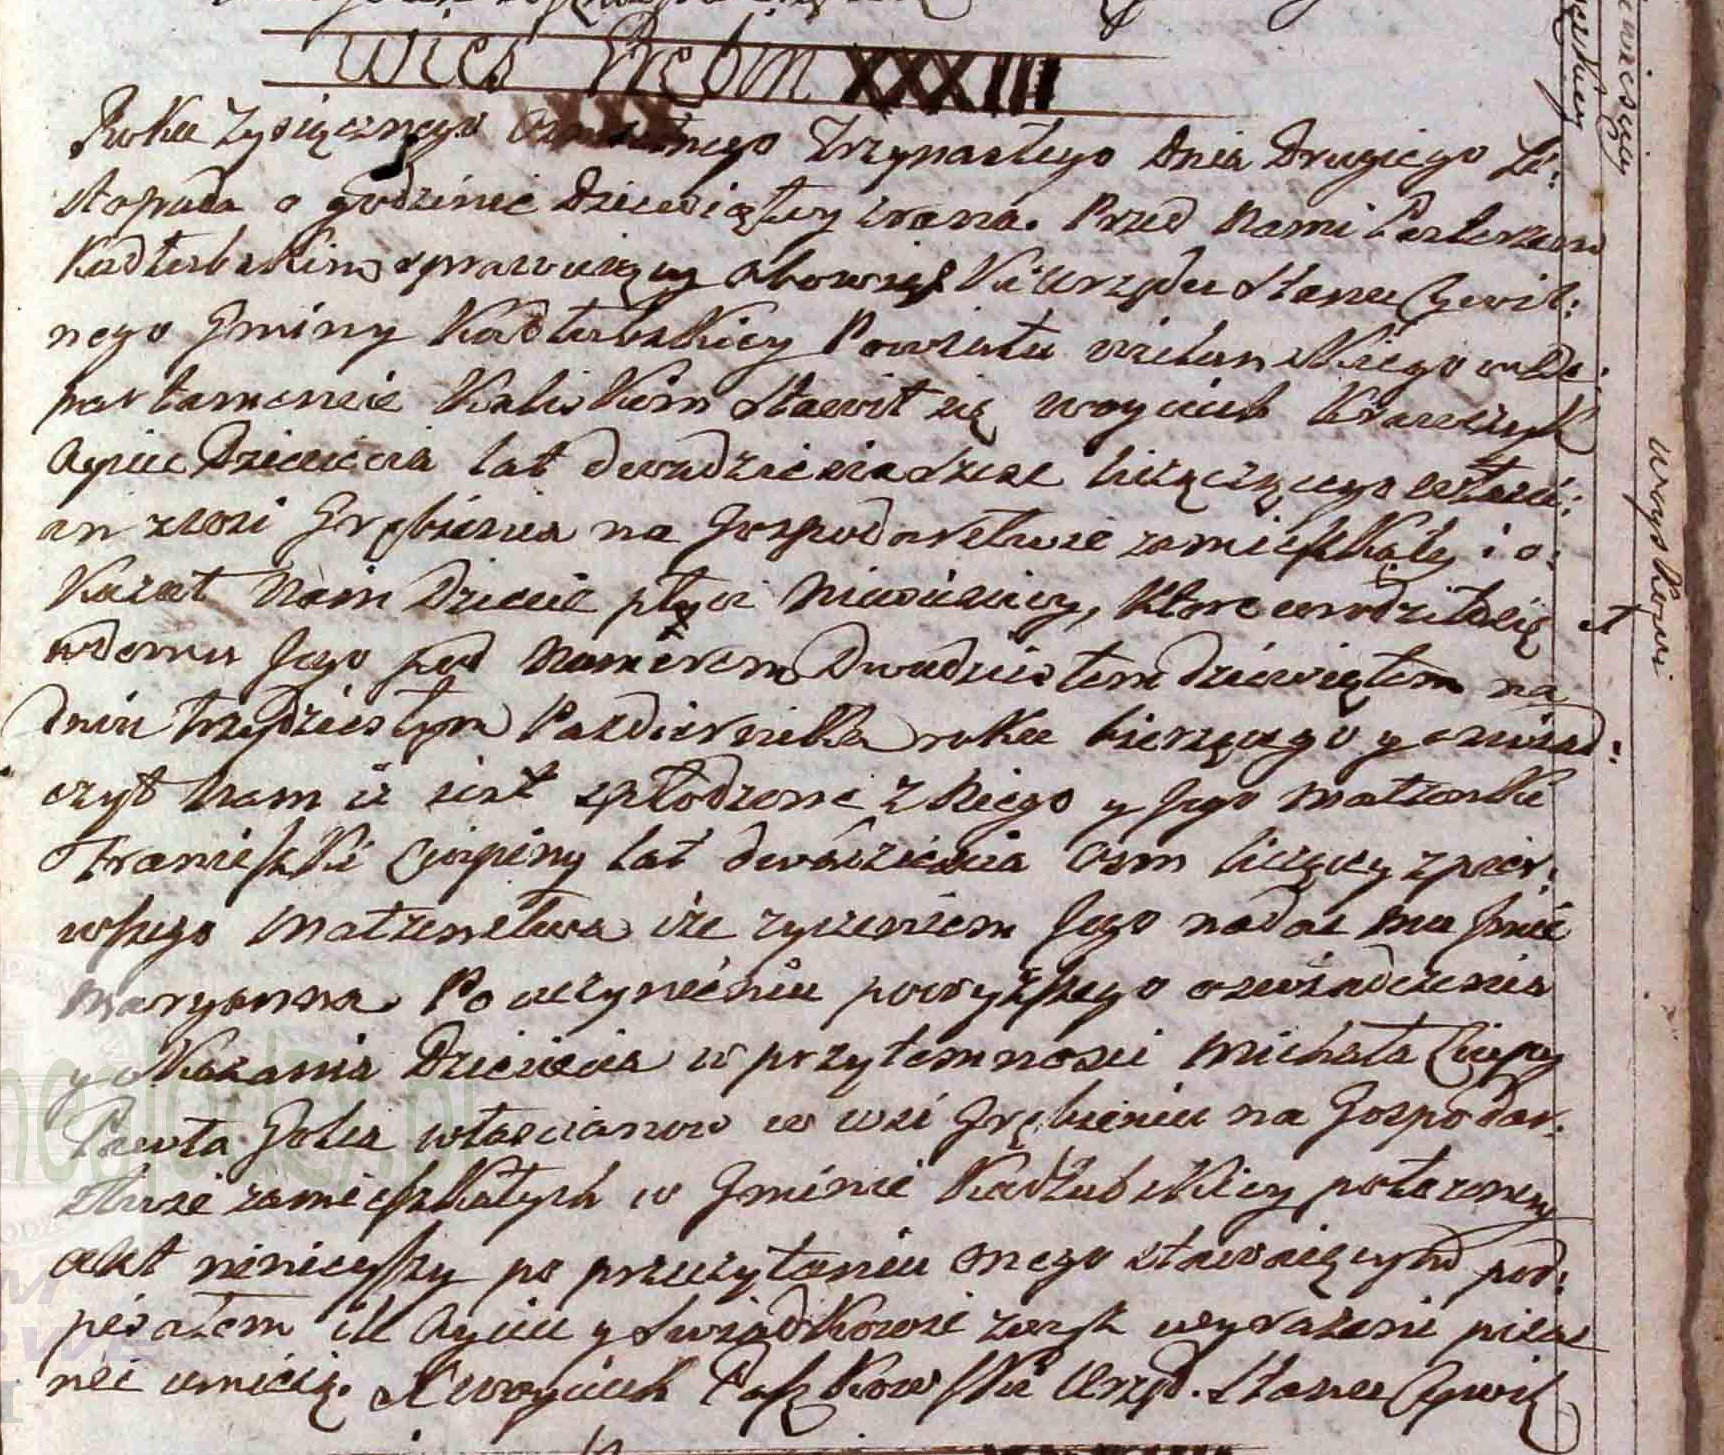 wies Grębin XXXIII
Roku Tysiącznego osmsetnego Trzynastego Dnia Drugiego Li:
stopada o godzinie Dziewiątey zrana. Przed Nami
Kadłubskim sprawuiący obowiązki Urzędu Stanu Cywil:
nego Gminy Kadłubskiey Powiatu wieluńskiego w De:
partamencie Kaliskim stawił się woyciech Krawczyk
Oyciec Dziecięcia lat dwadziescia szesc liczącego włosci:
an zwsi Grębienia na Gospodarstwie zamieszkały i o:
kazał Nam Dziecie płci Niewiesciey, ktore urodziło się
wdomu Jego pod Numerem Dwudziestem dziewiętem na
dniu trzydziestym Pazdziernika roku bierzącego y oswiad:
czył Nam iż iest spłodzone z Niego y Jego małżonki
Franciszki Ciupiny lat dwadziescia osm liczący zpier:
wszego Małzenstwa iże zyczeniem Jego nadac mu Jmie
Maryanna. Po uczynieniu powyższego oswiadczenia
y okazania Dziecięcia w przytomnosci Michała Ciupy
Pawła Gola włoscianow w wsi Grębieniu na Gospodar:
stwie zamieszkałych w Gminie Kadłubskiey położoney
akt ninieyszy po przeczytaniu onego stawaiącym pod:
pisałem iż Oyciec y Swiadkowie zwysz wyrażeni pisac
nie umieią. X woyciech Paszkowski Urzęd. Stanu Cywil